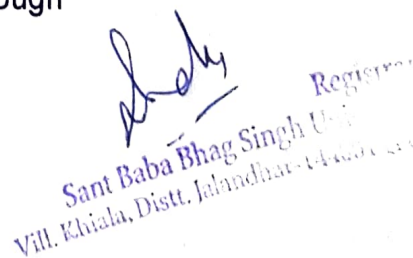 ough
Registrar
Sant Baba Bhag Singh
Vill. Khiala, Distt. Jalandhar-